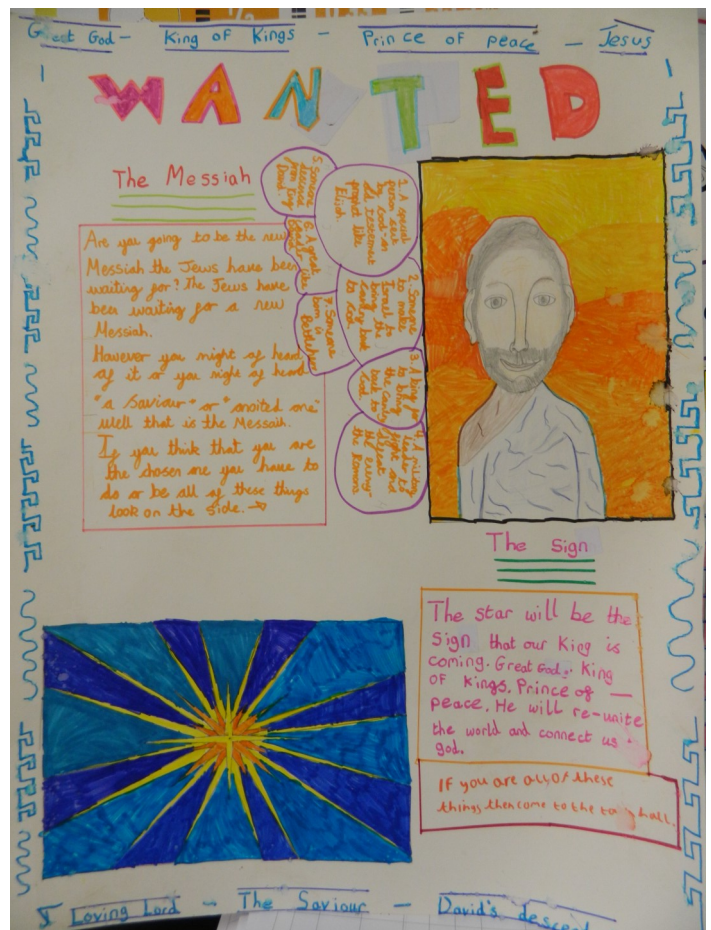 Great God - King of Kings - Prince of peace - Jesus
WANTED
The Messiah
Are you going to be the new
Messiah the Jews have been
waiting for? The Jews have
been waiting for a new
Messiah.
However you might of heard
of it or you might of heard
"a Saviour" or "anoited one"
well that is the Messiah.
If you think that you are
the chosen one you have to
do or be all of these things
look on the side. →
1. A special
person sent
by God - an
old testement
prophet like
Elijah.
2. Someone
to make
Israel to
bring the
country back
to God.
3. A king for
to bring
the country
back to
God.
4. A military
leader to
fight and
defeat
the enemy
the Romans
5. Someone
decieved
from King
David
6. A great
leader like
7. Someone
born in
Bethlehem
The Sign
The star will be the
sign that our King is
coming. Great God. King
of Kings. Prince of
peace. He will re-unite
the world and connect us
god.
If you are all of these
things then come to the hall.
Loving Lord - The Saviour - David's